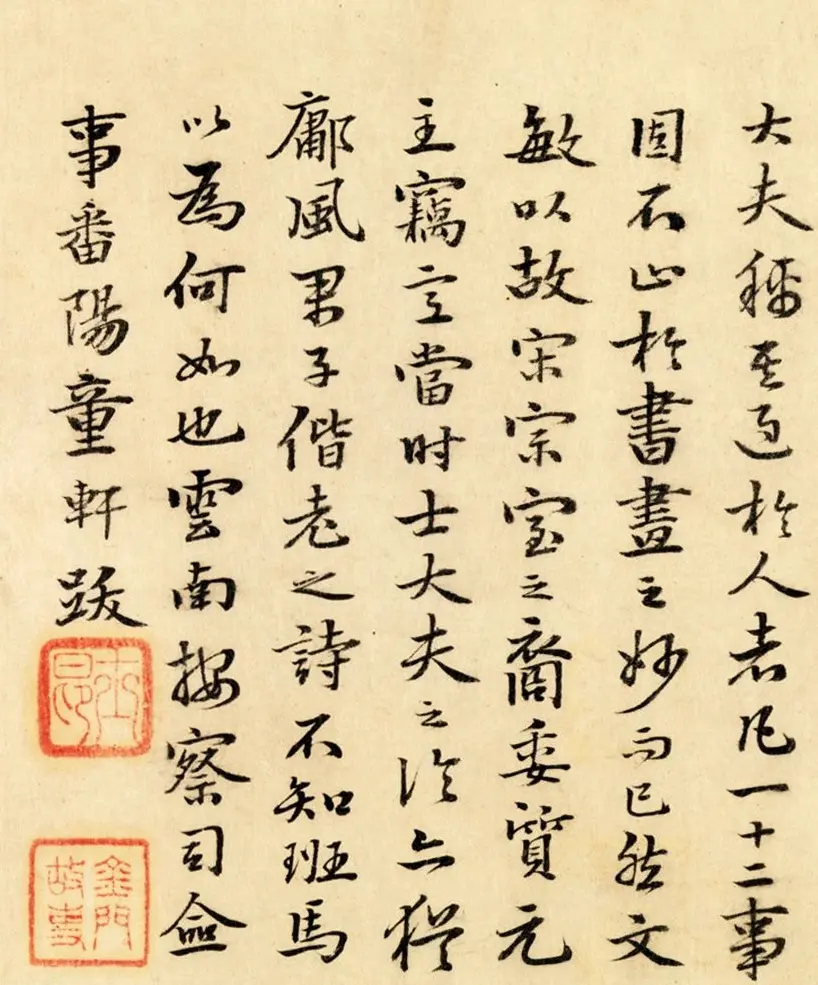 大夫稱其過於人者凡一十二事
固不止於書畫之妙而已然文
敏以故宋宗室之裔委質元
主竊意當時士大夫之論亦猶
鄘風君子偕老之詩不知班馬
以為何如也雲南按察司僉
事番陽童軒跋
士昂
金門故事